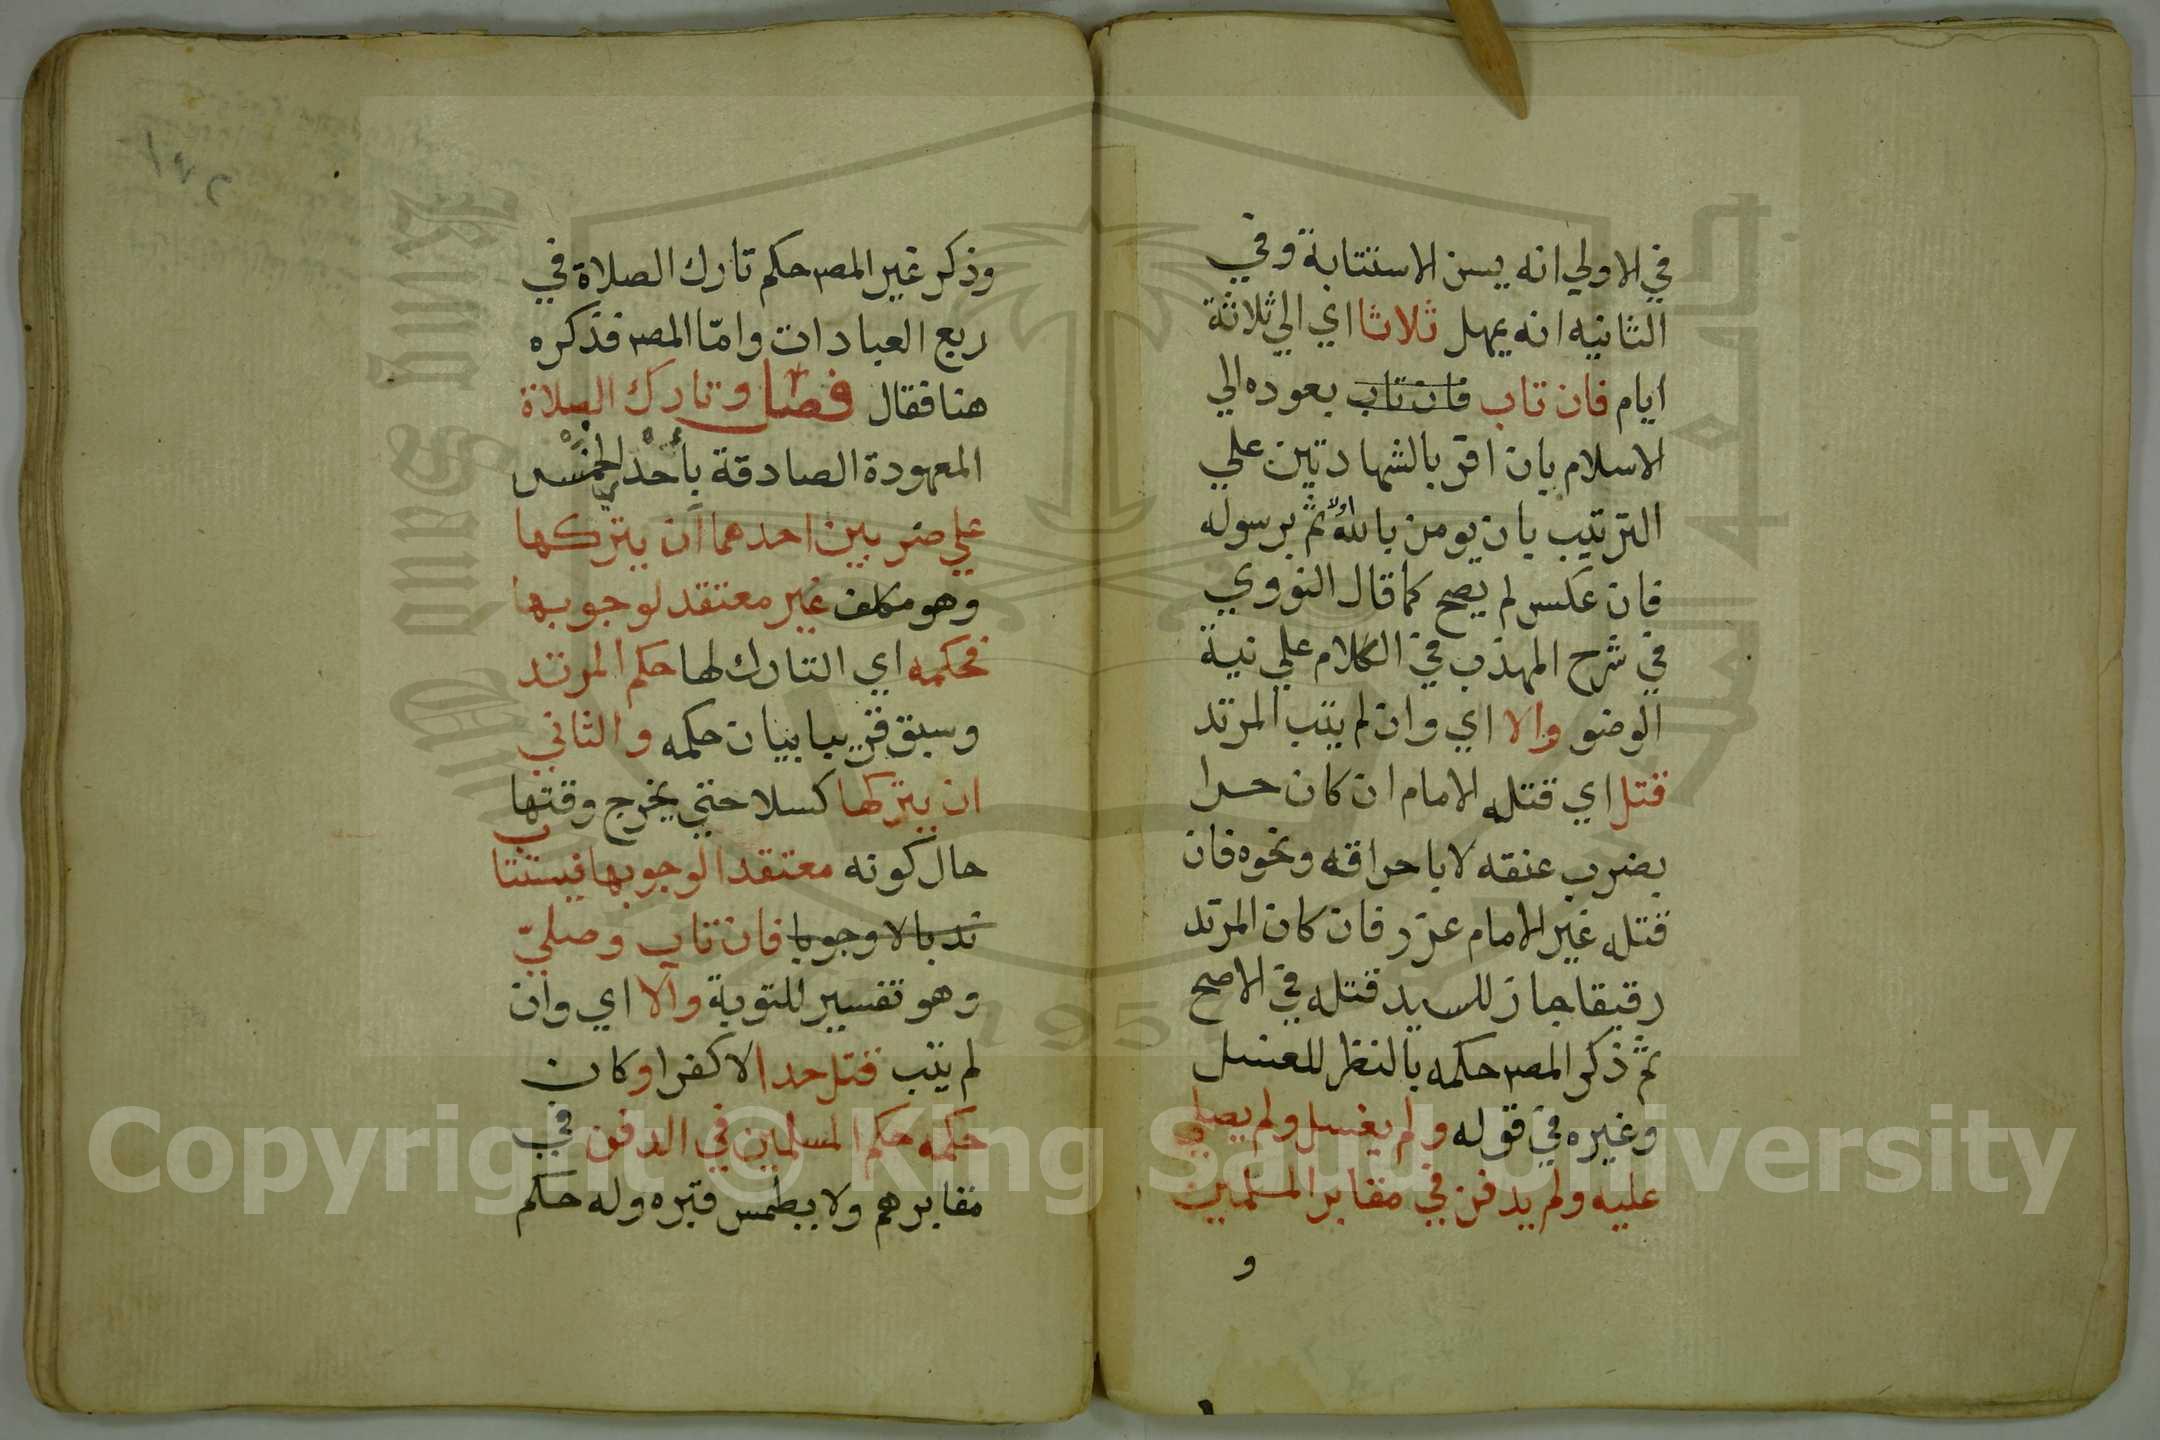 في الاولي انه يسن الاستتابة وفي
الثانيه انه يمهل ثلاثا اي الي ثلاثة
ايام فان تاب فان تاب بعوده الي
الاسلام بان اقر بالشهادتين علي
الترتيب بان يومن بالله اولا ثم برسوله
فان عكس لم يصح كما قال النووي
في شرح المهذب في الكلام علي نية
الوضو والا اي وان لم يتب المرتد
قتل اي قتله الامام ان كان حرا
بضرب عنقه لا باحراقه ونحوه فان
قتله غير الامام عزر فان كان المرتد
رقيقا جاز للسيد قتله في الاصح
ثم ذكر المص حكمه بالنظر للغسل
وغيره في قوله ولم يغسل ولم يصلي
عليه ولم يدفن في مقابر المسلمين
و
وذكر غير المص حكم تارك الصلاة في
ربع العبادات واما المص فذكره
هنا فقال فصل وتارك الصلاة
المعهودة الصادقة بأحد الخمس
علي ضربين احدهما أن يتركها
وهو مكلف غير معتقد لوجوبها
فحكمه اي التارك لها حكم المرتد
وسبق قريبا بيان حكمه والثاني
ان يتركها كسلا حتي يخرج وقتها
حال كونه معتقدا لوجوبها فيستتاب
ندبا لا وجوبا فان تاب وصليّ
وهو تفسير للتوبة وآلا اي وان
لم يتب قتل حدا لا كفرا وكان
حكمه حكم المسلمين في الدفن في
مقابرهم ولا يطمس قبره وله حكم
٢٣١
Copyright © King Saud University
King Saud University
1957